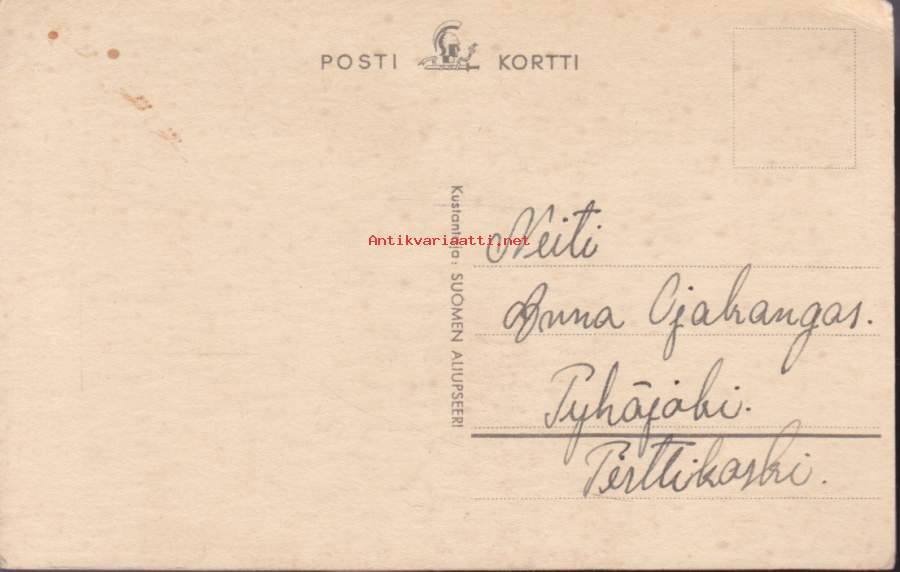 POSTI KORTTI
Kustantaja: SUOMEN ALIUPSEERI
Antikvariaatti.net
Neiti
Anna Ojakangas.
Pyhäjoki.
Perttikoski.